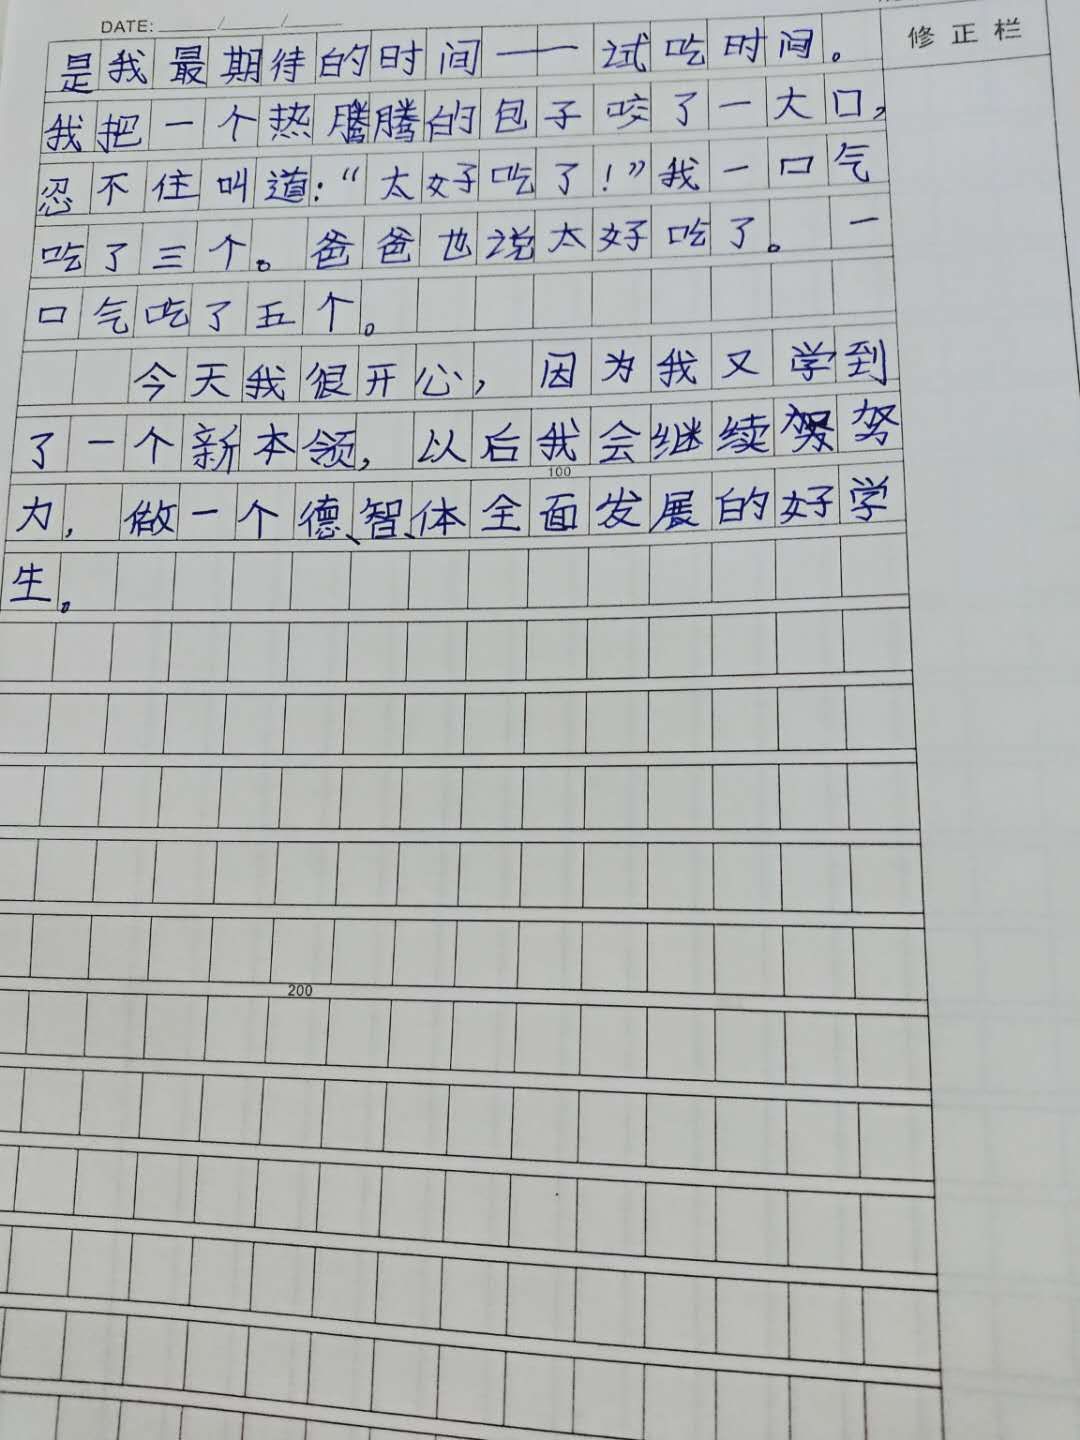 DATE: ____/____/____
修正栏
是我最期待的时间——试吃时间。
我把一个热腾腾的包子咬了一大口，
忍不住叫道：“太好吃了！”我一口气
吃了三个。爸爸也说太好吃了。一
口气吃了五个。
今天我很开心，因为我又学到
了一个新本领，以后我会继续努
100
力，做一个德、智、体全面发展的好学
生。
200